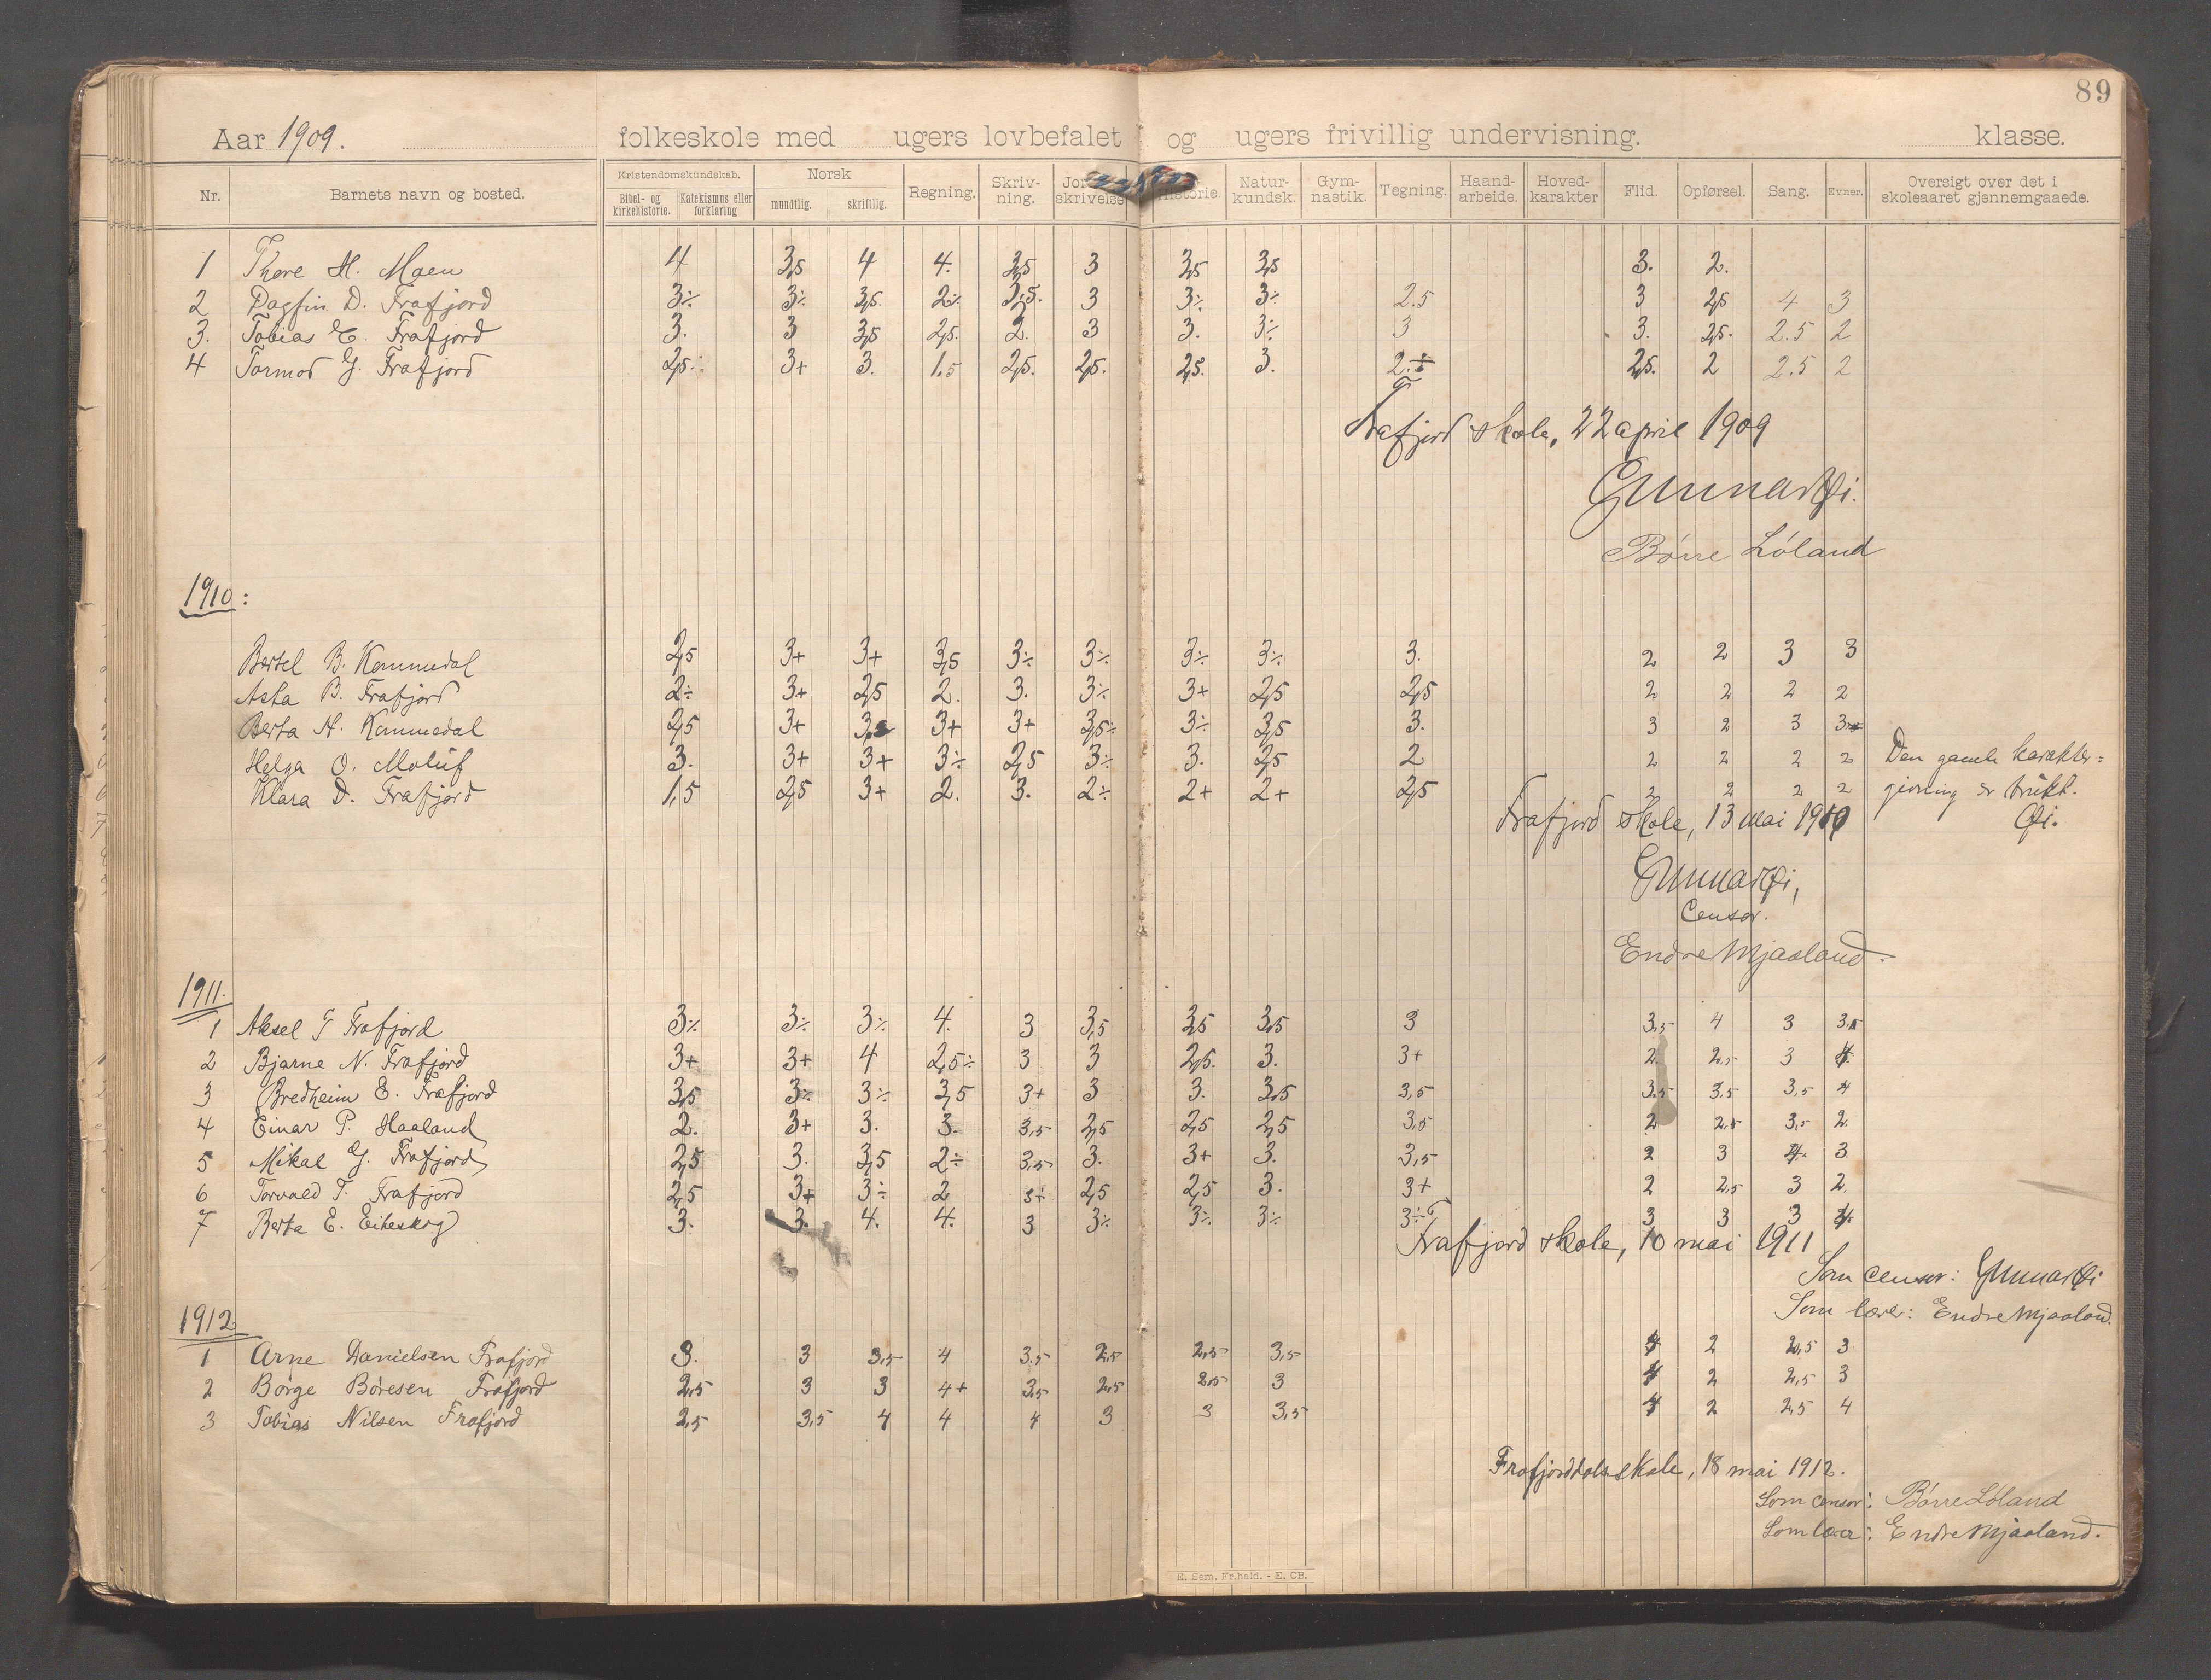 89
Aar 1909. folkeskole med ugers lovbefalet og ugers frivillig undervisning. klasse.
Nr. Barnets navn og bosted. Kristendomskundskab. Bibel- og kirkehistorie. Katekismus eller forklaring Norsk mundtlig. skriftlig. Regning. Skriv-ning. skrivelse Historie. Natur-kundsk. Gym-nastik. Tegning. Haand-arbeide. Hoved-karakter Flid. Opførsel. Sang. Evner. Oversigt over det i skoleaaret gjennemgaaede.
1 Thore H. Moen 4 3,5 4 4. 3,5 3 3,5 3,5 3. 2.
2 Dagfin D. Frafjord 3÷ 3÷ 3,5. 2÷ 3,5. 3 3÷ 3÷ 2.5 3 2,5 4 3
3. Tobias E. Frafjord 3. 3 3,5 2,5. 2. 3 3. 3÷ 3 3. 2,5. 2.5 2
4 Tormod G. Frafjord 2,5÷ 3+ 3. 1.5 2,5. 2,5. 2,5. 3. 2,5. 2 2.5 2
Frafjord skole, 22 april 1909
Gunnar Øi.
Børre Løland
1910:
Bertel B. Kommedal 2,5 3+ 3+ 3,5 3÷ 3÷ 3÷ 3÷ 3. 2 2 3 3
Asta B. Frafjord 2÷ 3+ 2,5 2. 3. 3÷ 3+ 2,5 2,5 2 2 2 2
Berta N. Kommedal 2,5 3+ 3+ 3+ 3,5÷ 3÷ 3,5 3. 3 2 3 3
Helga O. Molúf 3. 3+ 3+ 3÷ 2,5 3÷ 3. 2,5 2 2 2 2 2 Den gamle karakter=
Klara D. Frafjord 1,5 2,5 3+ 2. 3. 2÷ 2+ 2+ 2,5 2 2 2 2 givning er brúkt.
Frafjord skole, 13 mai 1910 Øi.
Gunnar Øi,
Censor.
Endre Mjaaland.
1911.
1 Aksel T Frafjord 3÷ 3÷ 3÷ 4. 3 3,5 3,5 3,5 3 3,5 4 3 3,5
2 Bjarne N. Frafjord 3+ 3+ 4 2,5÷ 3 3 2,5. 3. 3+ 2. 2,5 3 4.
3 Bredheim E. Frafjord 3,5 3÷ 3÷ 3,5 3+ 3 3. 3,5 3,5 3.5 3,5 3,5 4
4 Einar P. Haaland 2. 3+ 3. 3. 3,5 2,5 2,5 2,5 3,5 2 2,5 3,5 2.
5 Mikal G. Frafjord 2,5 3. 3,5 2÷ 3,5 3. 3+ 3. 3,5 2 3 4. 3
6 Torvald T. Frafjord 2,5 3+ 3÷ 2 3+ 2,5 2,5 3. 3+ 2 2,5 3 2.
7 Berta E. Eikeskog 3. 3. 4. 4. 3 3÷ 3÷ 3÷ 3÷ 3 3 3 4.
Frafjord skole, 10 mai 1911
Som censor: Gunnar Øi
Som lærer: Endre Mjaaland.
1912
1 Arne Danielsen Frafjord 3. 3 3,5 4 3.5 2,5 2,5 3,5 2 2,5 3
2 Børge Børesen Frafjord 2,5 3 3 4+ 3,5 2,5 2,5 3 2 2,5 3
3 Tobias Nilsen Frafjord 2,5 3,5 4 4 4 3 3 3,5 2 2,5 4
Frafjorddals skole, 18 mai 1912.
Som censor: Børre Løland
Som lærer: Endre Mjaaland.
E. Sem, Fr.hald. - E. CB.